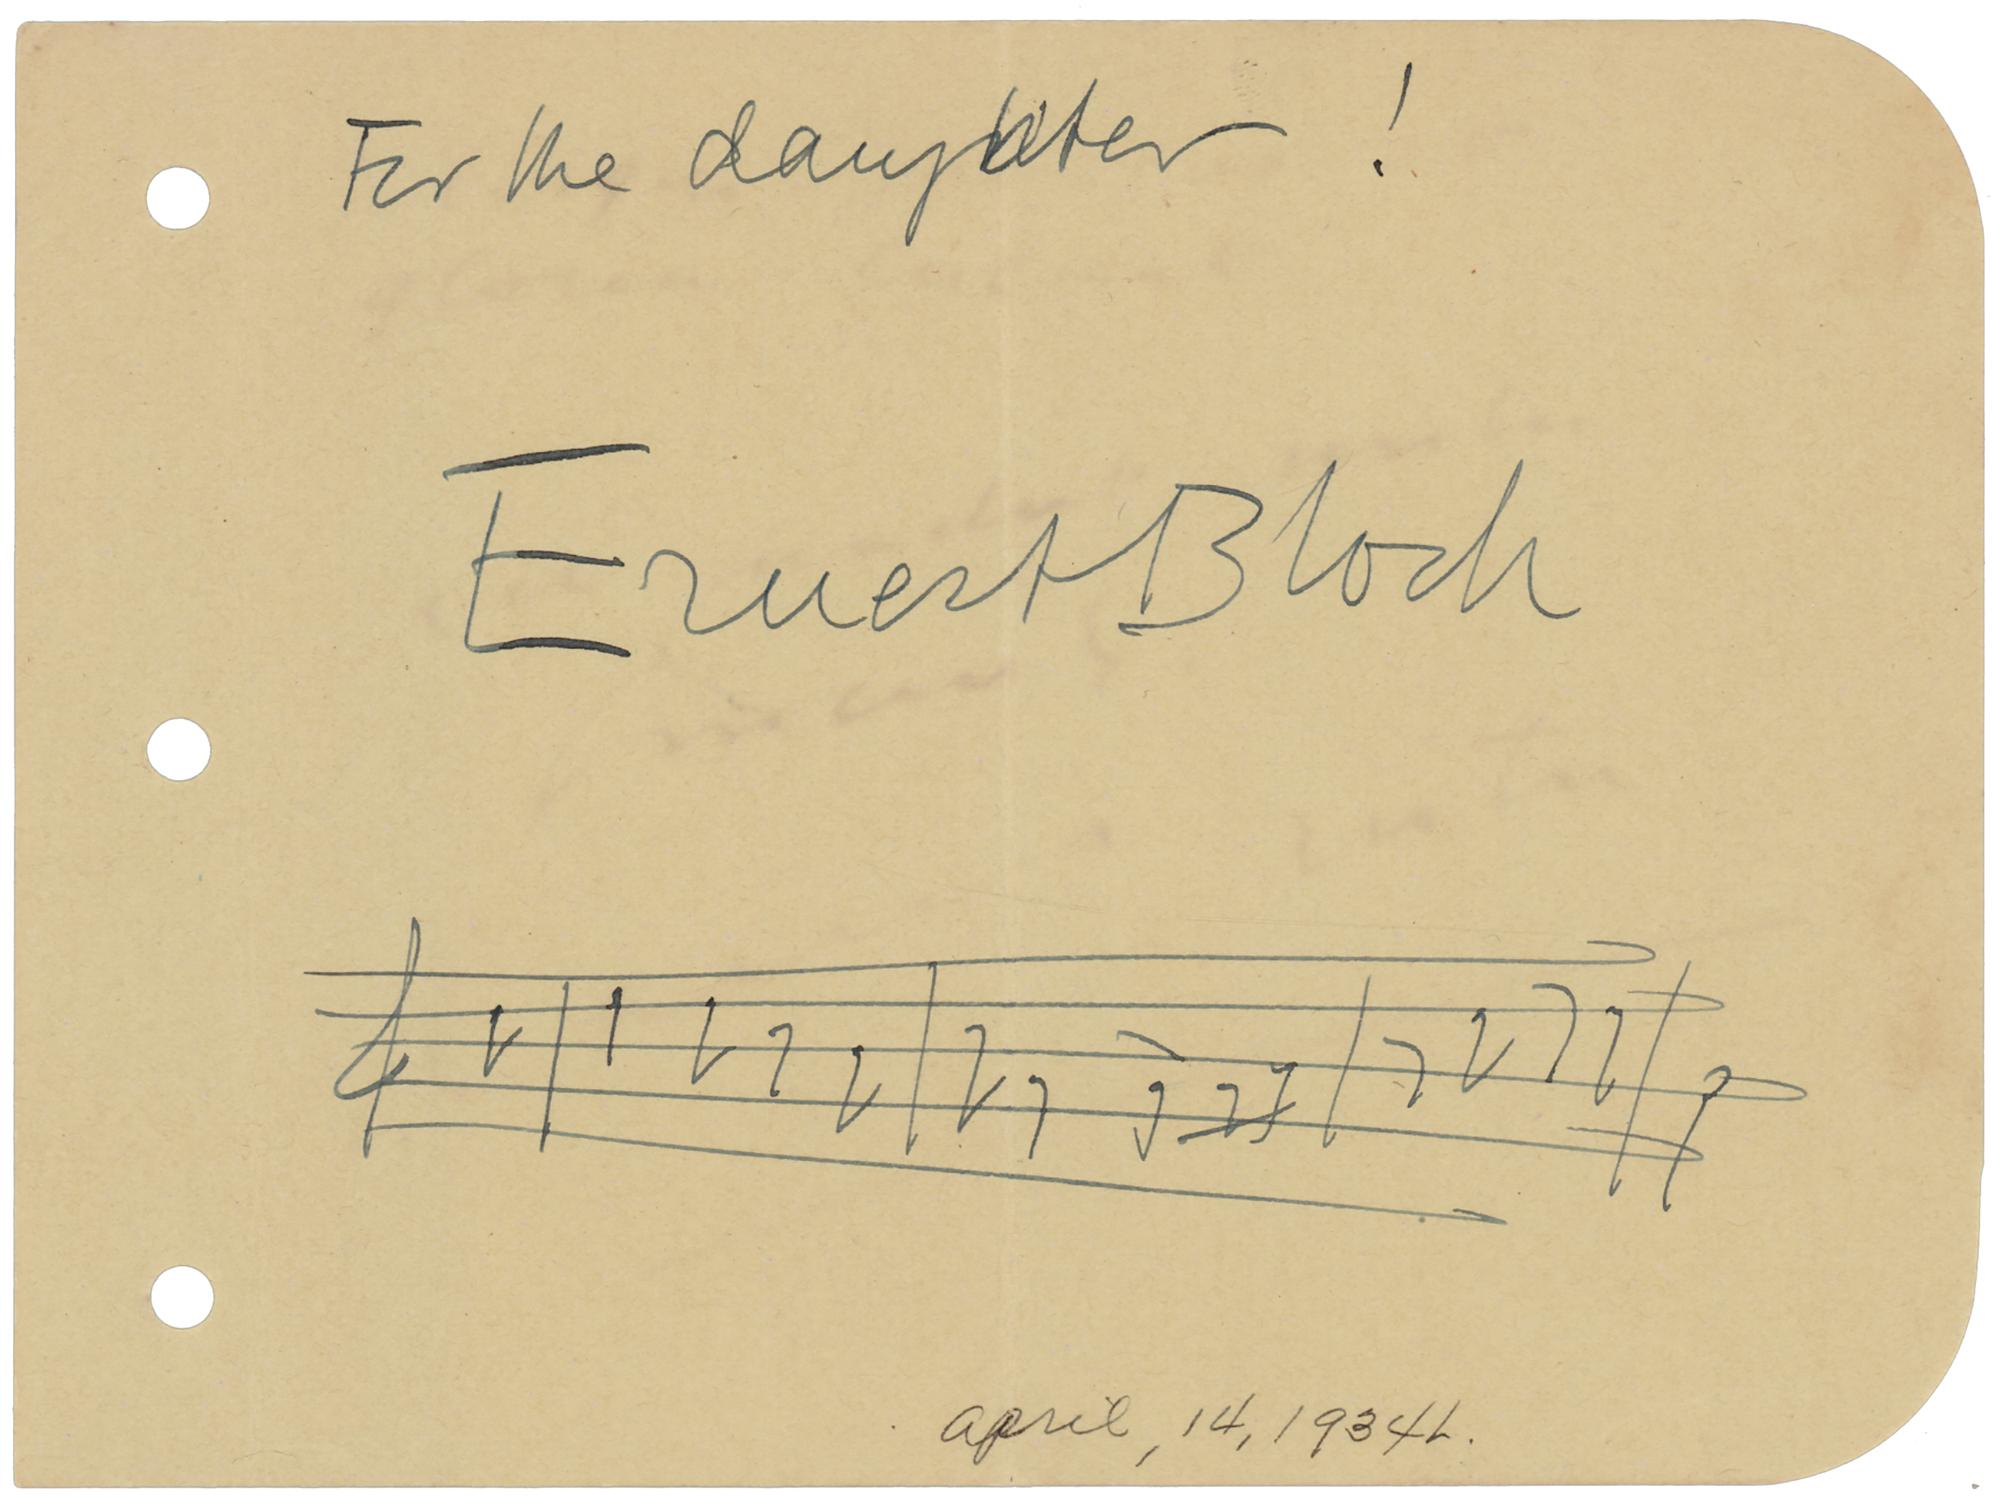 For the daughter !
Ernest Bloch
april, 14, 1934.